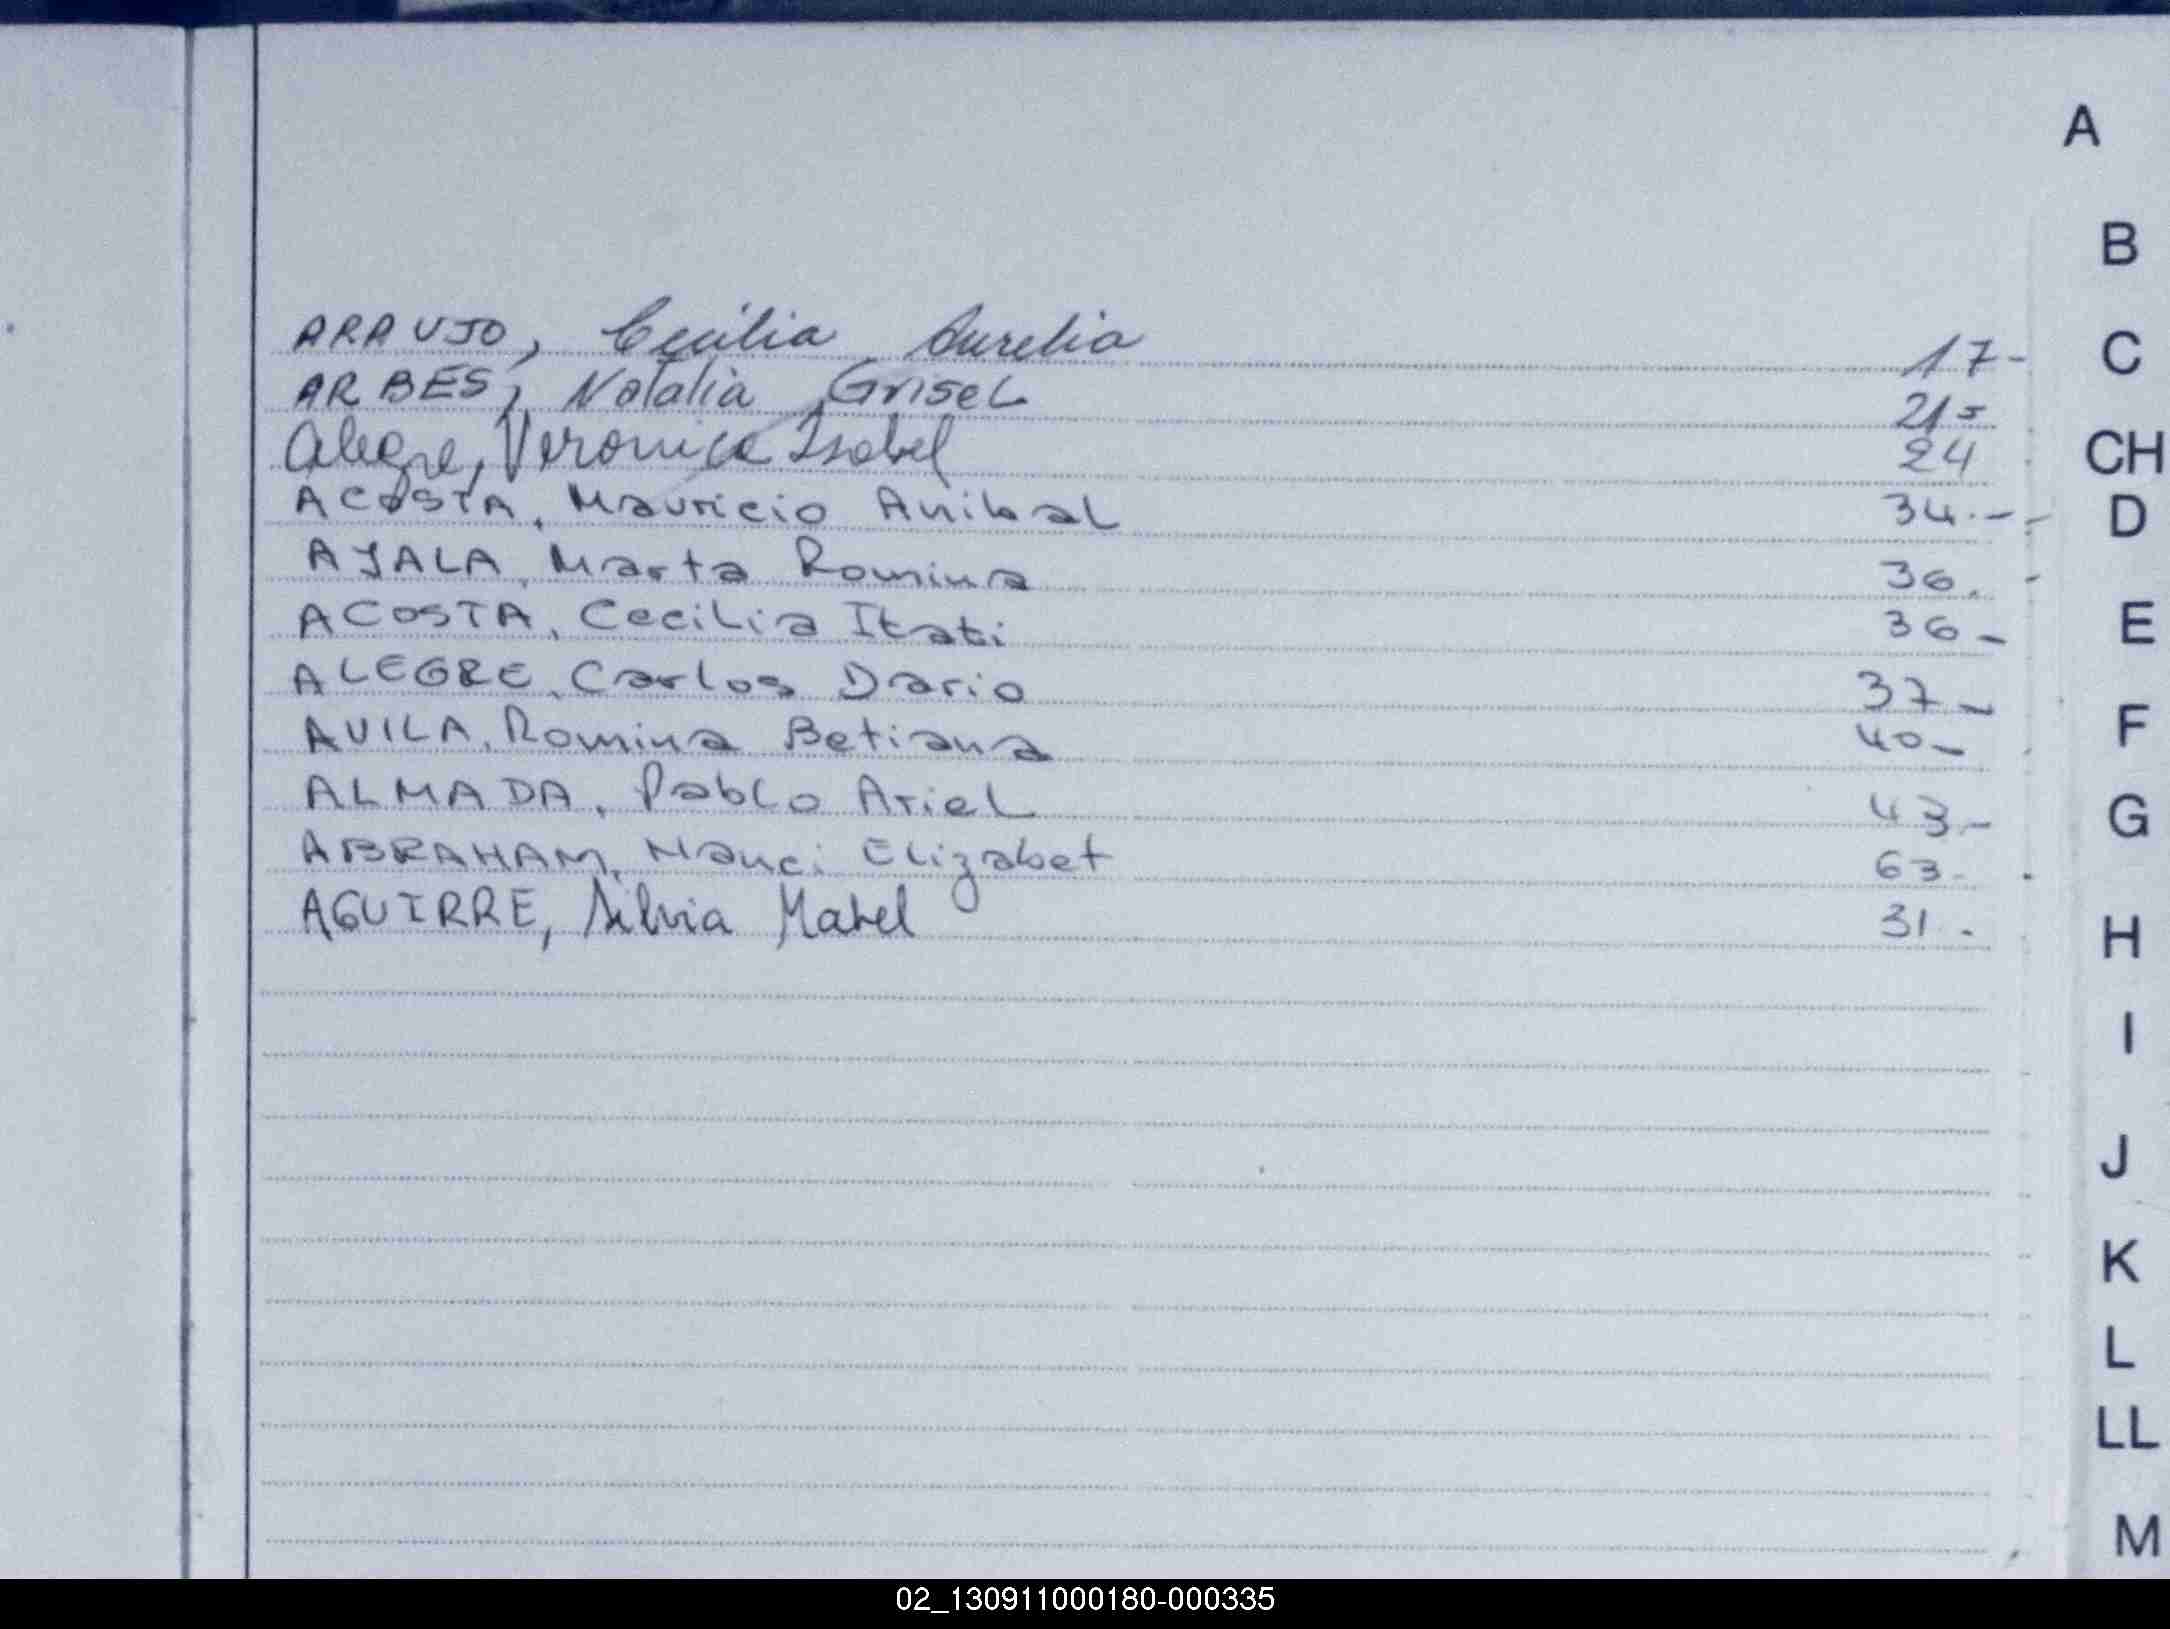 A
B
ARAUJO, Cecilia Aurelia 17-
C
ARBES, Natalia Grisel 21-
Alegre, Veronica Isabel 24
CH
ACOSTA, Mauricio Anibal 34.-
D
AJALA, Marta Romina 36.
ACOSTA, Cecilia Itati 36-
E
ALEGRE, Carlos Dario 37-
AVILA, Romina Betiana 40-
F
ALMADA, Pablo Ariel 43.-
G
ABRAHAM, Nanci Elizabet 63-
AGUIRRE, Silvia Mabel 31.-
H
I
J
K
L
LL
M
02_130911000180-000335